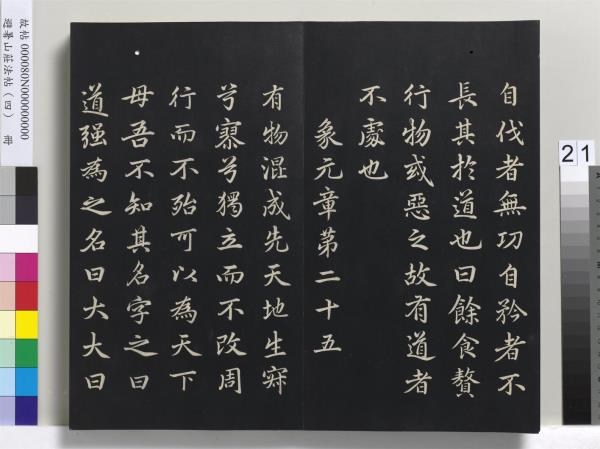 自伐者無功自矜者不
長其於道也曰餘食贅
行物或惡之故有道者
不處也
象元章第二十五
有物混成先天地生寂
兮寥兮獨立而不改周
行而不殆可以為天下
母吾不知其名字之曰
道强為之名曰大大曰
故帖 000080N000000000
避暑山莊法帖（四） 冊
21